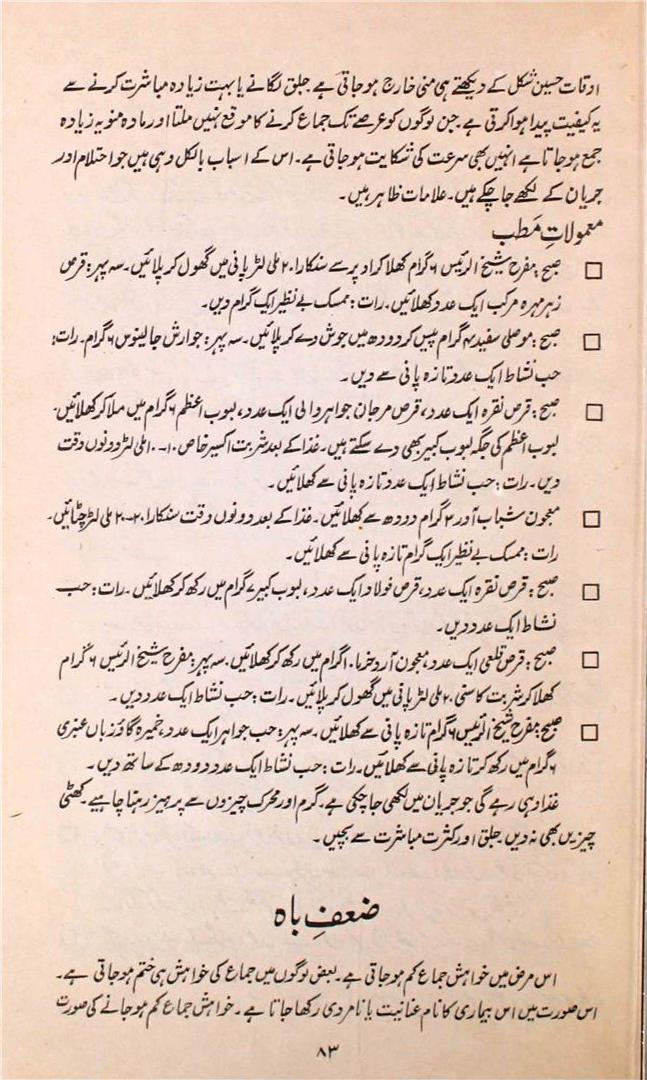 اوقات حسین شکل کے دیکھتے ہی منی خارج ہو جاتی ہے جلق لگانے یا بہت زیادہ مباشرت کرنے سے
یہ کیفیت پیدا ہوا کرتی ہے۔ جن لوگوں کو عرصے تک جماع کرنے کا موقع نہیں ملتا اور مادہ منویہ زیادہ
جمع ہو جاتا ہے انہیں بھی سرعت کی شکایت ہو جاتی ہے۔ اس کے اسباب بالکل وہی ہیں جو احتلام اور
جریان کے لکھے جا چکے ہیں۔ علامات ظاہر ہیں۔
معمولاتِ مَطب
□ صبح: مفرح شیخ الرئیس ۶ گرام کھلا کر اوپر سے سنکارا ۲۰ ملی لٹر پانی میں گھول کر پلائیں۔ سہ پہر: قرص
زہر مہرہ مرکب ایک عدد کھلائیں۔ رات: ممسک بے نظیر ایک گرام دیں۔
□ صبح: موصلی سفید ۴ گرام پیس کر دودھ میں جوش دے کر پلائیں۔ سہ پہر: جوارش جالینوس ۶ گرام۔ رات:
حب نشاط ایک عدد تازہ پانی سے دیں۔
□ صبح: قرص نقرہ ایک عدد، قرص مرجان جواہر والی ایک عدد، لبوب اعظم ۶ گرام میں ملا کر کھلائیں۔
لبوب اعظم کی جگہ لبوب کبیر بھی دے سکتے ہیں۔ غذا کے بعد شربت اکسیر خاص ۱۰-۱۰ ملی لٹر دونوں وقت
دیں۔ رات: حب نشاط ایک عدد تازہ پانی سے کھلائیں۔
□ معجون شباب آور ۳ گرام دودھ سے کھلائیں۔ غذا کے بعد دونوں وقت سنکارا ۲۰-۲۰ ملی لٹر چٹائیں۔
رات: ممسک بے نظیر ایک گرام تازہ پانی سے کھلائیں۔
□ صبح: قرص نقرہ ایک عدد، قرص فولاد ایک عدد، لبوب کبیر ۷ گرام میں رکھ کر کھلائیں۔ رات: حب
نشاط ایک عدد دیں۔
□ صبح: قرص قلعی ایک عدد، معجون آرد خرما ۱۰ گرام میں رکھ کر کھلائیں۔ سہ پہر: مفرح شیخ الرئیس ۶ گرام
کھلا کر شربت کاسنی ۲۰ ملی لٹر پانی میں گھول کر پلائیں۔ رات: حب نشاط ایک عدد دیں۔
□ صبح: مفرح شیخ الرئیس ۶ گرام تازہ پانی سے کھلائیں۔ سہ پہر: حب جواہر ایک عدد، خمیرہ گاؤ زباں عنبری
۶ گرام میں رکھ کر تازہ پانی سے کھلائیں۔ رات: حب نشاط ایک عدد دودھ کے ساتھ دیں۔
غذا وہی رہے گی جو جریان میں لکھی جا چکی ہے۔ گرم اور محرک چیزوں سے پرہیز رہنا چاہیے۔ کھٹی
چیزیں بھی نہ دیں۔ جلق اور کثرت مباشرت سے بچیں۔
ضعفِ باہ
اس مرض میں خواہش جماع کم ہو جاتی ہے۔ بعض لوگوں میں جماع کی خواہش ہی ختم ہو جاتی ہے۔
اس صورت میں اس بیماری کا نام عنانیت یا نامردی رکھا جاتا ہے۔ خواہش جماع کم ہو جانے کی صورت
۸۳